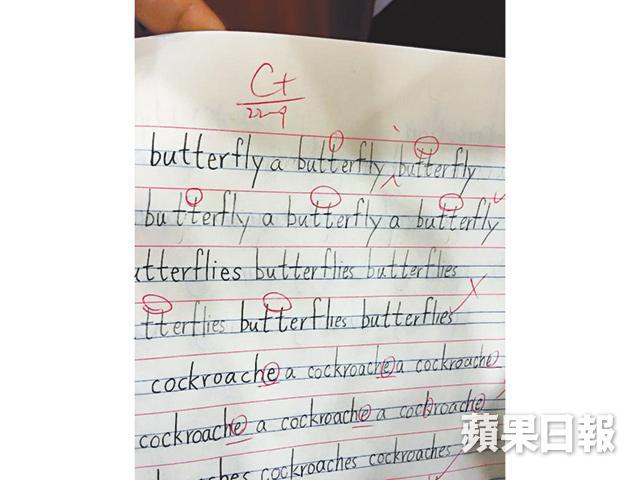 C+
22-9
butterfly a butterfly butterfly
butterfly a butterfly a butterfly
utterflies butterflies butterflies
tterflies butterflies butterflies
cockroach e a cockroache a cockroache
cockroache a cockroache a cockroache
aches cockroaches cockroaches
蘋果日報